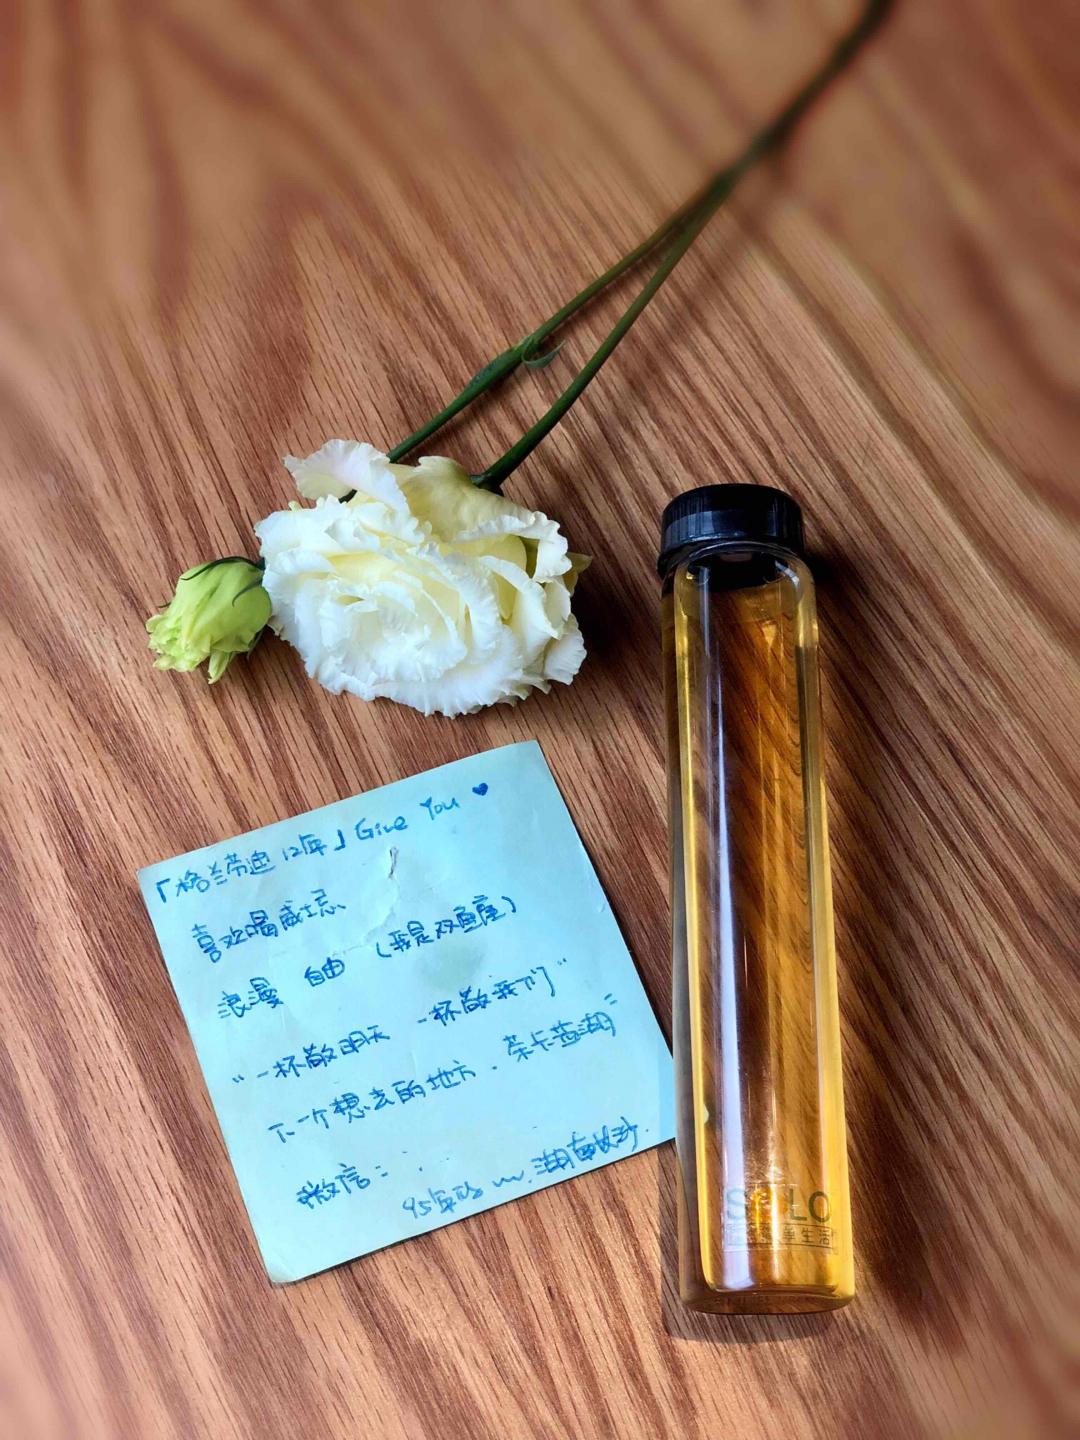 「格兰蒂迪 12年」Give You ♥
喜欢喝威士忌
浪漫 自由 (我是双鱼座)
“一杯敬明天 一杯敬我们”
下一个想去的地方. 茶卡盐湖
微信:
95年的 湖南长沙.
SOLO
生活